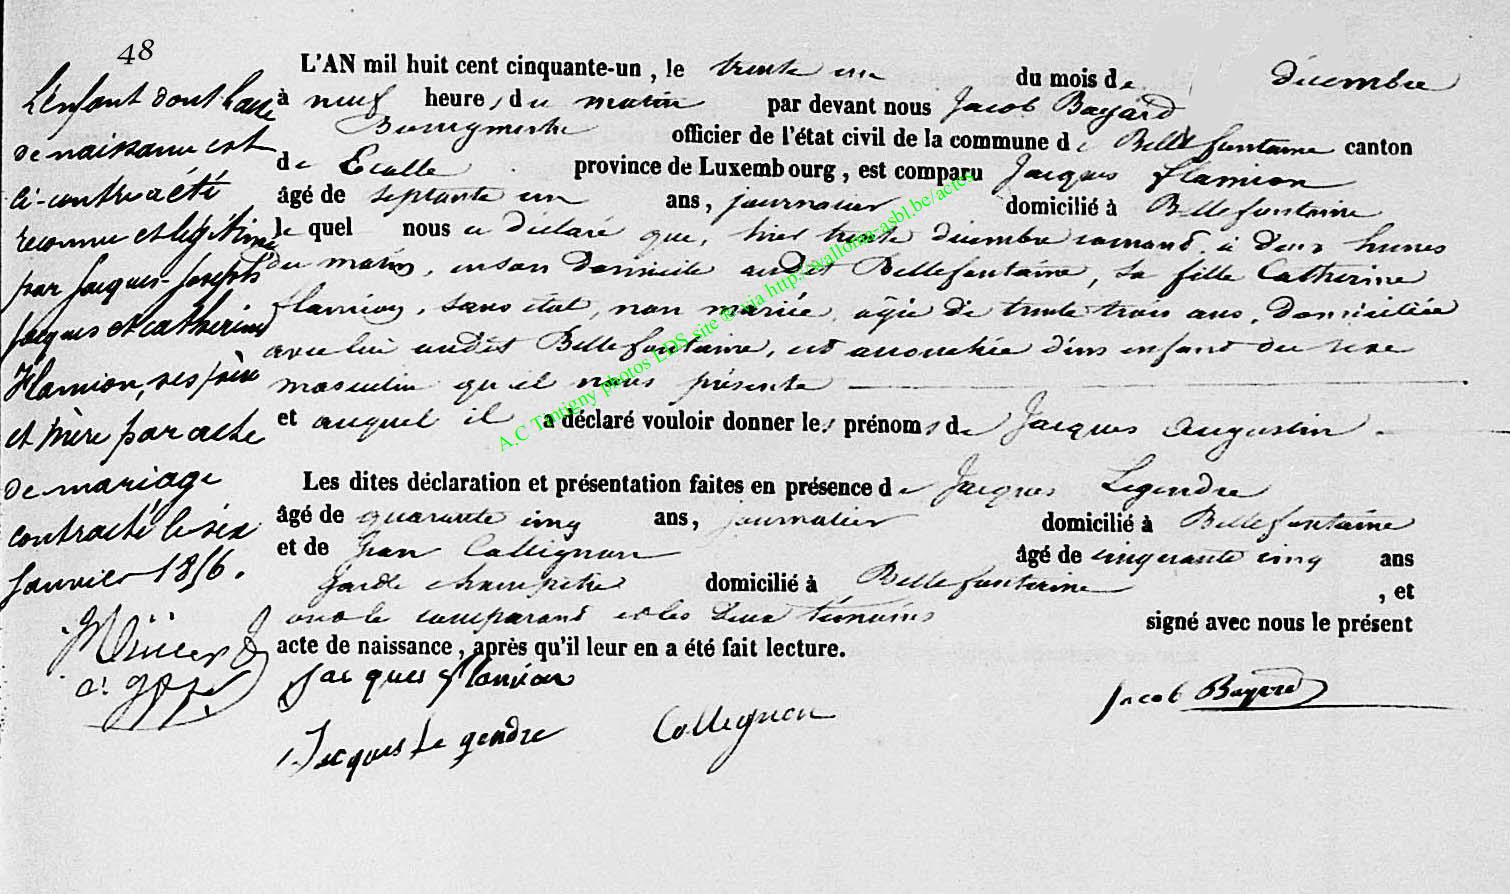 48
L'enfant dont l'acte
de naissance est
ci-contre a été
reconnu et légitimé
par Jacques-Joseph
Jacques et Catherine
Flamion, ses père
et mère par acte
de mariage
contracté le six
Janvier 1856.
L'AN mil huit cent cinquante-un, le trente un du mois de décembre
à neuf heures du matin par devant nous Jacob Bayard
Bourgmestre officier de l'état civil de la commune de Bellefontaine canton
de Etalle province de Luxembourg, est comparu Jacques Flamion
âgé de septante un ans, journalier domicilié à Bellefontaine
le quel nous a déclaré que, hier trente décembre courant, à deux heures
du matin, en son domicile audit Bellefontaine, sa fille Catherine
Flamion, sans état, non mariée, agée de trente trois ans, domiciliée
avec lui audit Bellefontaine, est accouchée d'un enfant du sexe
masculin qu'il nous présente
et auquel il a déclaré vouloir donner les prénoms de Jacques Augustin
Les dites déclaration et présentation faites en présence de Jacques Legendre
âgé de quarante cinq ans, journalier domicilié à Bellefontaine
et de Jean Collignon âgé de cinquante cinq ans
garde champêtre domicilié à Bellefontaine, et
ont le comparant et les deux témoins signé avec nous le présent
acte de naissance, après qu'il leur en a été fait lecture.
Jacques Flamion
Jacques Le gendre Collignon Jacob Bayard
A.C Tintigny photos LDS site © via http://wallonia-asbl.be/actes